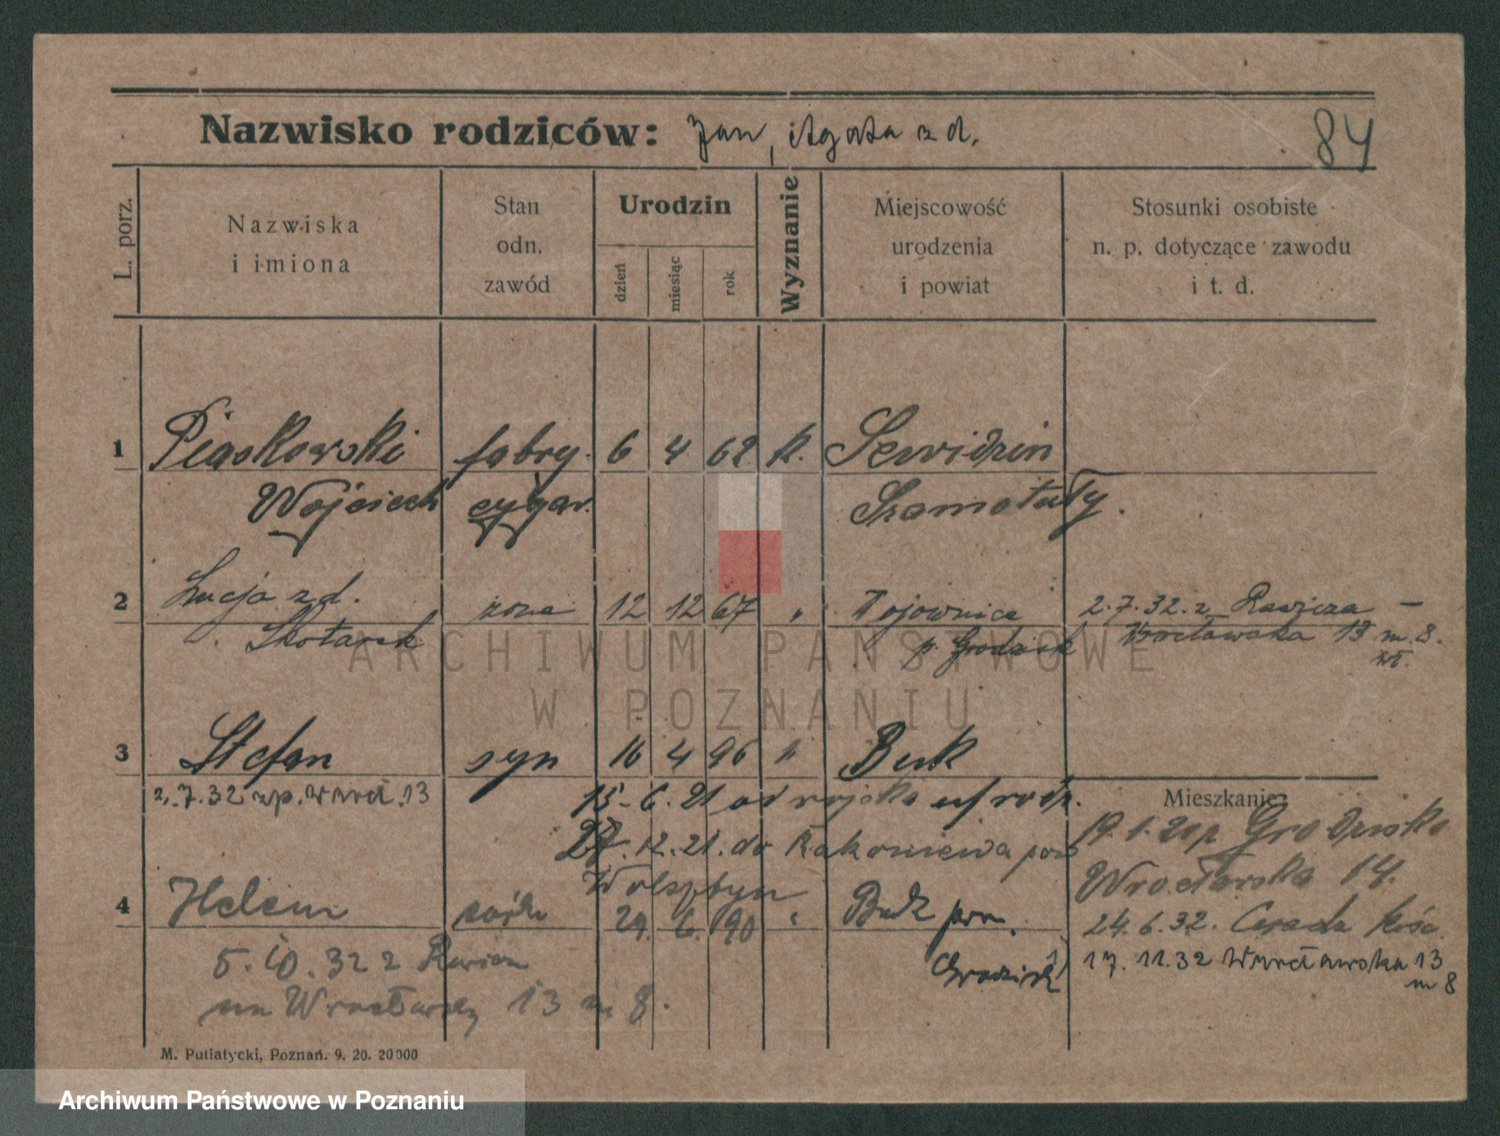 Nazwisko rodziców: Jan, Agata z d.
84
L. porz.
Nazwiska
i imiona
Stan
odn.
zawód
Urodzin
dzień
miesiąc
rok
Wyznanie
Miejscowość
urodzenia
i powiat
Stosunki osobiste
n. p. dotyczące zawodu
i t. d.
1 Piaskowski fabry. 6 4 62 k. Sewidzin
Wojciech cygar. Szamotuły.
2 Łucja z d. żona 12 12 67 " Wojownice 2.7.32. z Rawicza –
Skotarek p. Grodzisk Wrocławska 13 m. 8.
3 Stefan syn 16 4 96 " Buk
2.7.32 zp. Wrocł. 13
15.6.21 od wojska
27.12.21. do Rakoniewa pow
Wolsztyn
Mieszkanie:
19.1.21 p Grodzisko
Wrocławska 14.
4 Helena córka 29. 6. 90 " Buk pow.
Grodzisk
24.6.32. Kośc.
17.11.32 Wrocławska 13
m 8
5.10.32 z Rawicza
na Wrocławską 13 m 8.
M. Putiatycki, Poznań. 9. 20. 20000
ARCHIWUM PAŃSTWOWE
W POZNANIU
Archiwum Państwowe w Poznaniu